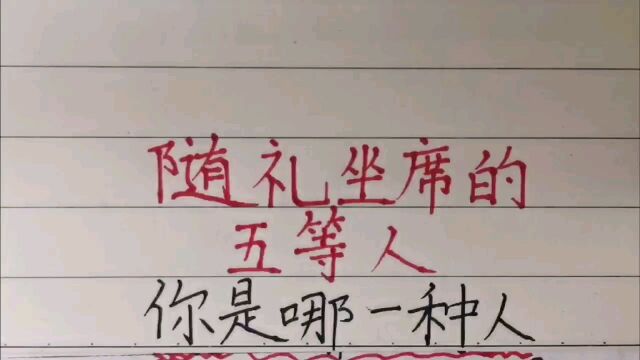 随礼坐席的
五等人
你是哪一种人